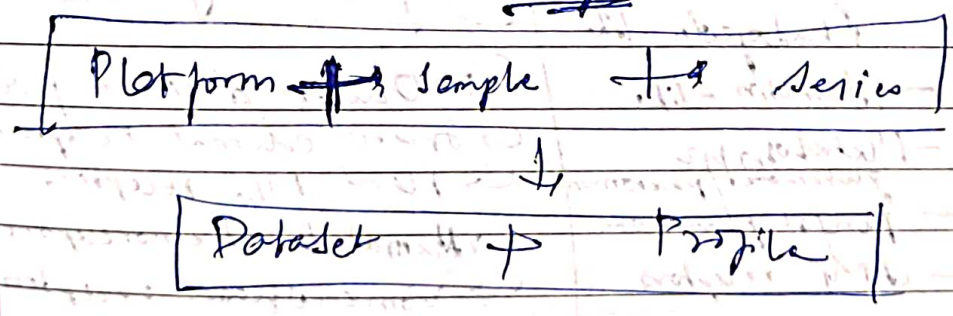 Platform + Sample + Series
↓
Dataset + Profile